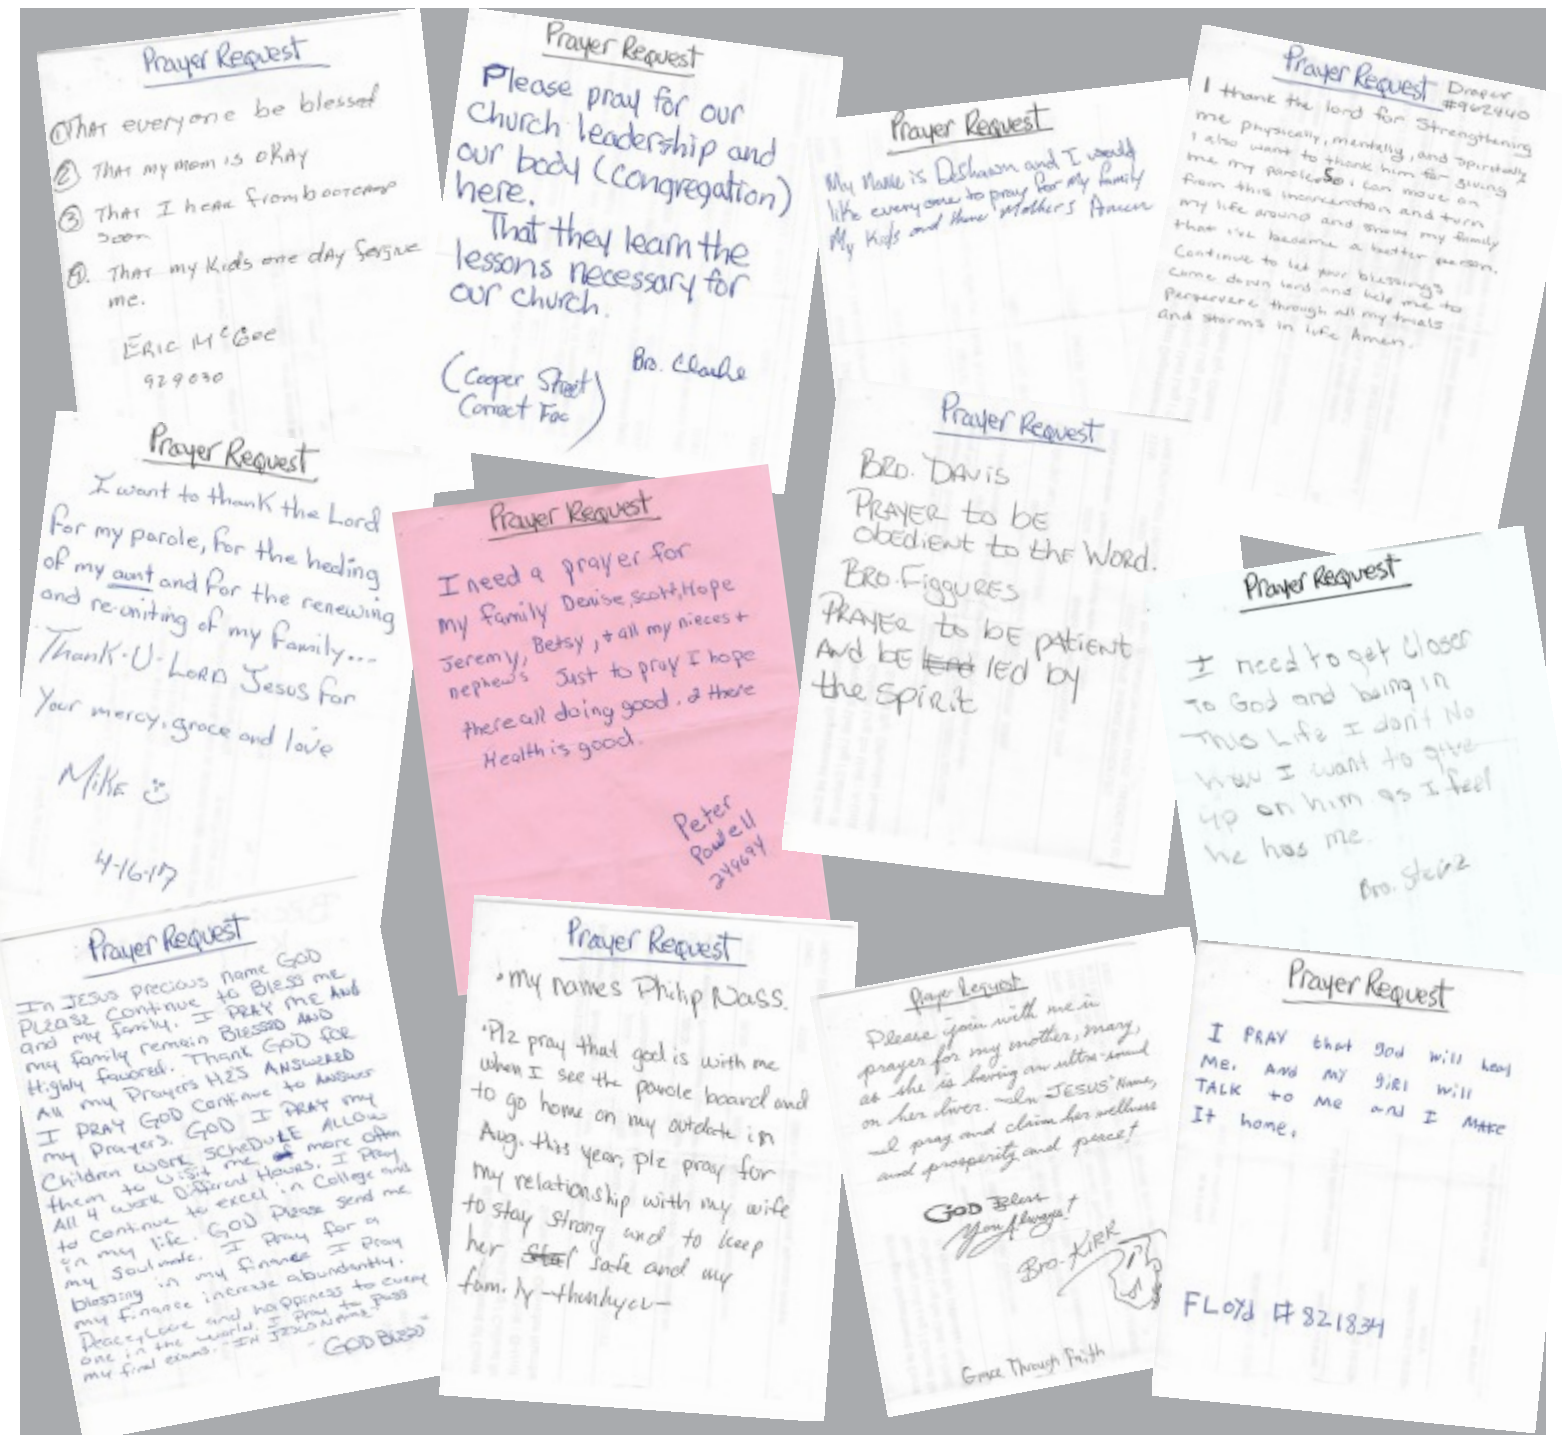 Prayer Request
① THAT everyone be blessed
② THAT my mom is OKAY
③ THAT I hear from bootcamp
soon
④. THAT my Kids one day forgive
me.
ERIC McGee
929030
Prayer Request
Please pray for our
Church leadership and
our body (congregation)
here.
That they learn the
lessons necessary for
our church.
Bro. Clarke
(Cooper Street
Correct Fac)
Prayer Request
My Name is Deshawn and I would
like everyone to pray for My family
My Kids and there Mothers Amen
Prayer Request
Draper
#962440
I thank the lord for Strengthening
me physically, mentally, and spiritually
I also want to thank him for giving
me my parole so i can move on
from this incarceration and turn
my life around and show my family
that i've became a better person.
Continue to let your blessings
come down lord and help me to
perservere through all my trials
and storms in life Amen.
Prayer Request
I want to thank the Lord
for my parole, for the healing
of my aunt and for the renewing
and re-uniting of my family...
Thank-U-LORD Jesus for
Your mercy, grace and love
MIKE
4-16-17
Prayer Request
I need a prayer for
my family Denise, scott, Hope
Jeremy, Betsy, + all my nieces +
nephews Just to pray I hope
there all doing good. & there
Health is good.
Peter
Powell
249694
Prayer Request
BRO. DAVIS
PRAYER to BE
OBEDIENT to the WORD.
BRO. FIGGURES
PRAYER to BE PATIENT
AND BE lead led by
the SPIRIT
Prayer Request
I need to get Closer
To God and being in
This Life I don't No
how I want to give
up on him as I feel
he has me.
Bro.
Prayer Request
In JESUS precious name GOD
PLEASE Continue to BLESS me
and my family. I PRAY ME AND
my family remain BLESSED AND
Highly favored. Thank GOD for
All my Prayers HES ANSWERED
I PRAY GOD Continue to ANSWER
my Prayers. GOD I PRAY my
Children work SCHEDULE ALLOW
them to visit me more often
All 4 work Different Hours. I Pray
to Continue to excel in College and
in my life. GOD Please send me
my Soulmate. I Pray for a
blessing in my finance I Pray
my finance increase abundantly.
Peace, Love and happiness to every
one in the world. I Pray to pass
my final exams. "IN JESUS NAME"
"GOD BLESS"
Prayer Request
• my names Philip Nass.
• Plz pray that god is with me
when I see the parole board and
to go home on my outdate in
Aug. this year, plz pray for
my relationship with my wife
to stay strong and to keep
her safe and my
family -thankyou-
Prayer Request
Please join with me in
prayer for my mother, Mary,
as she is having an ultra-sound
on her liver. In JESUS' Name,
I pray and claim her wellness
and prosperity and peace!
GOD Bless
You Always!
Bro. KIRK
Grace Through Faith
Prayer Request
I PRAY that god will heal
Me. And my girl will
TALK to Me and I MAKE
It home.
FLOYd # 821834